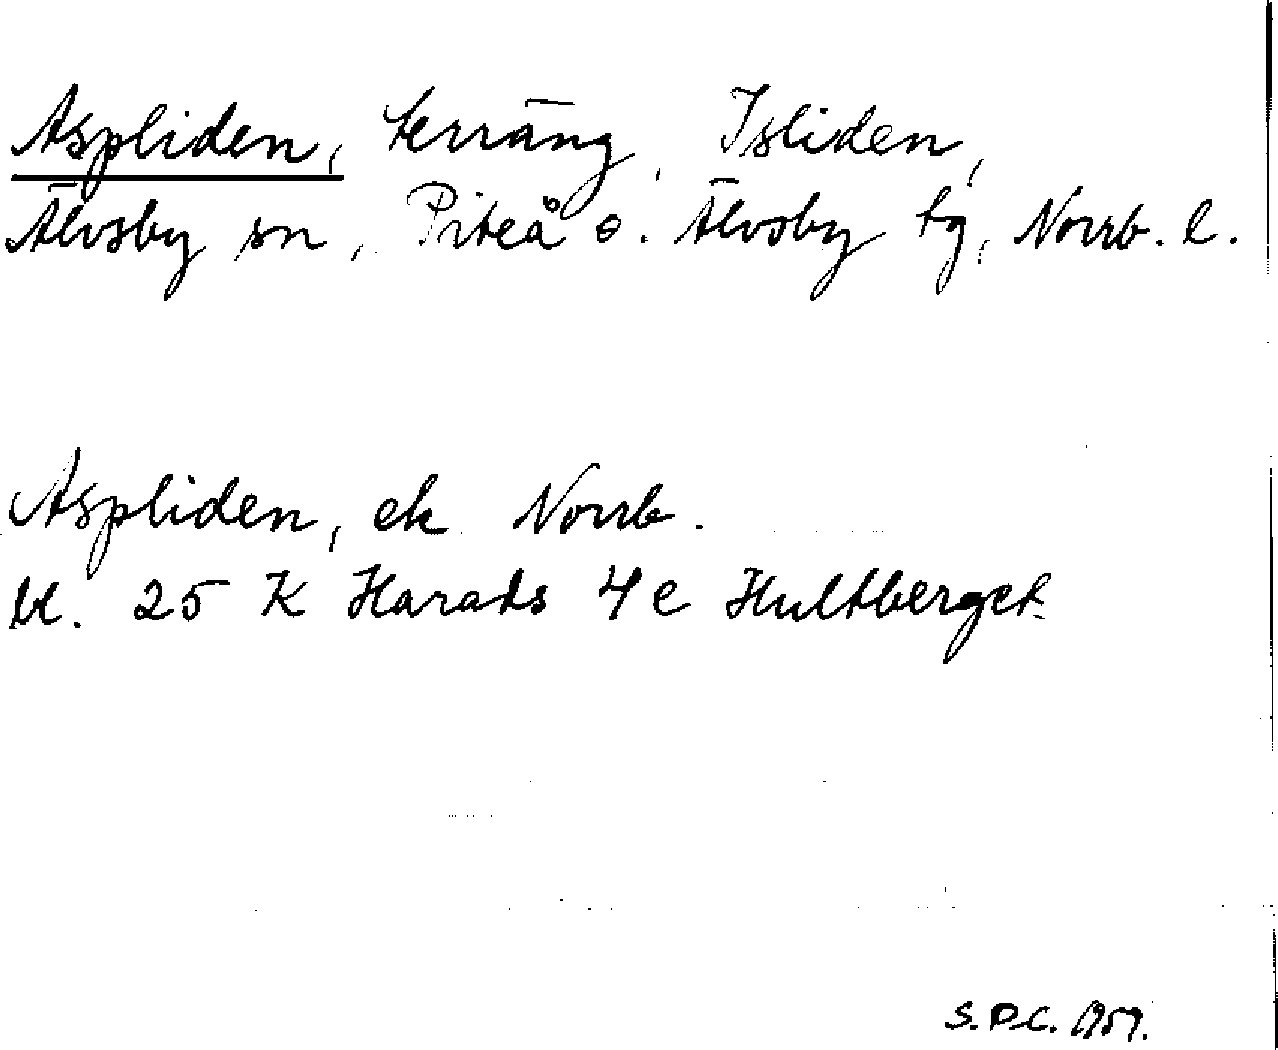 Aspliden, terräng, Isliden,
Älvsby sn, Piteå o. Älvsby tg, Norrb. l.
Aspliden, ek Norrb.
bl. 25 K Harads 4 e Hultberget
S.P.C. 1959.